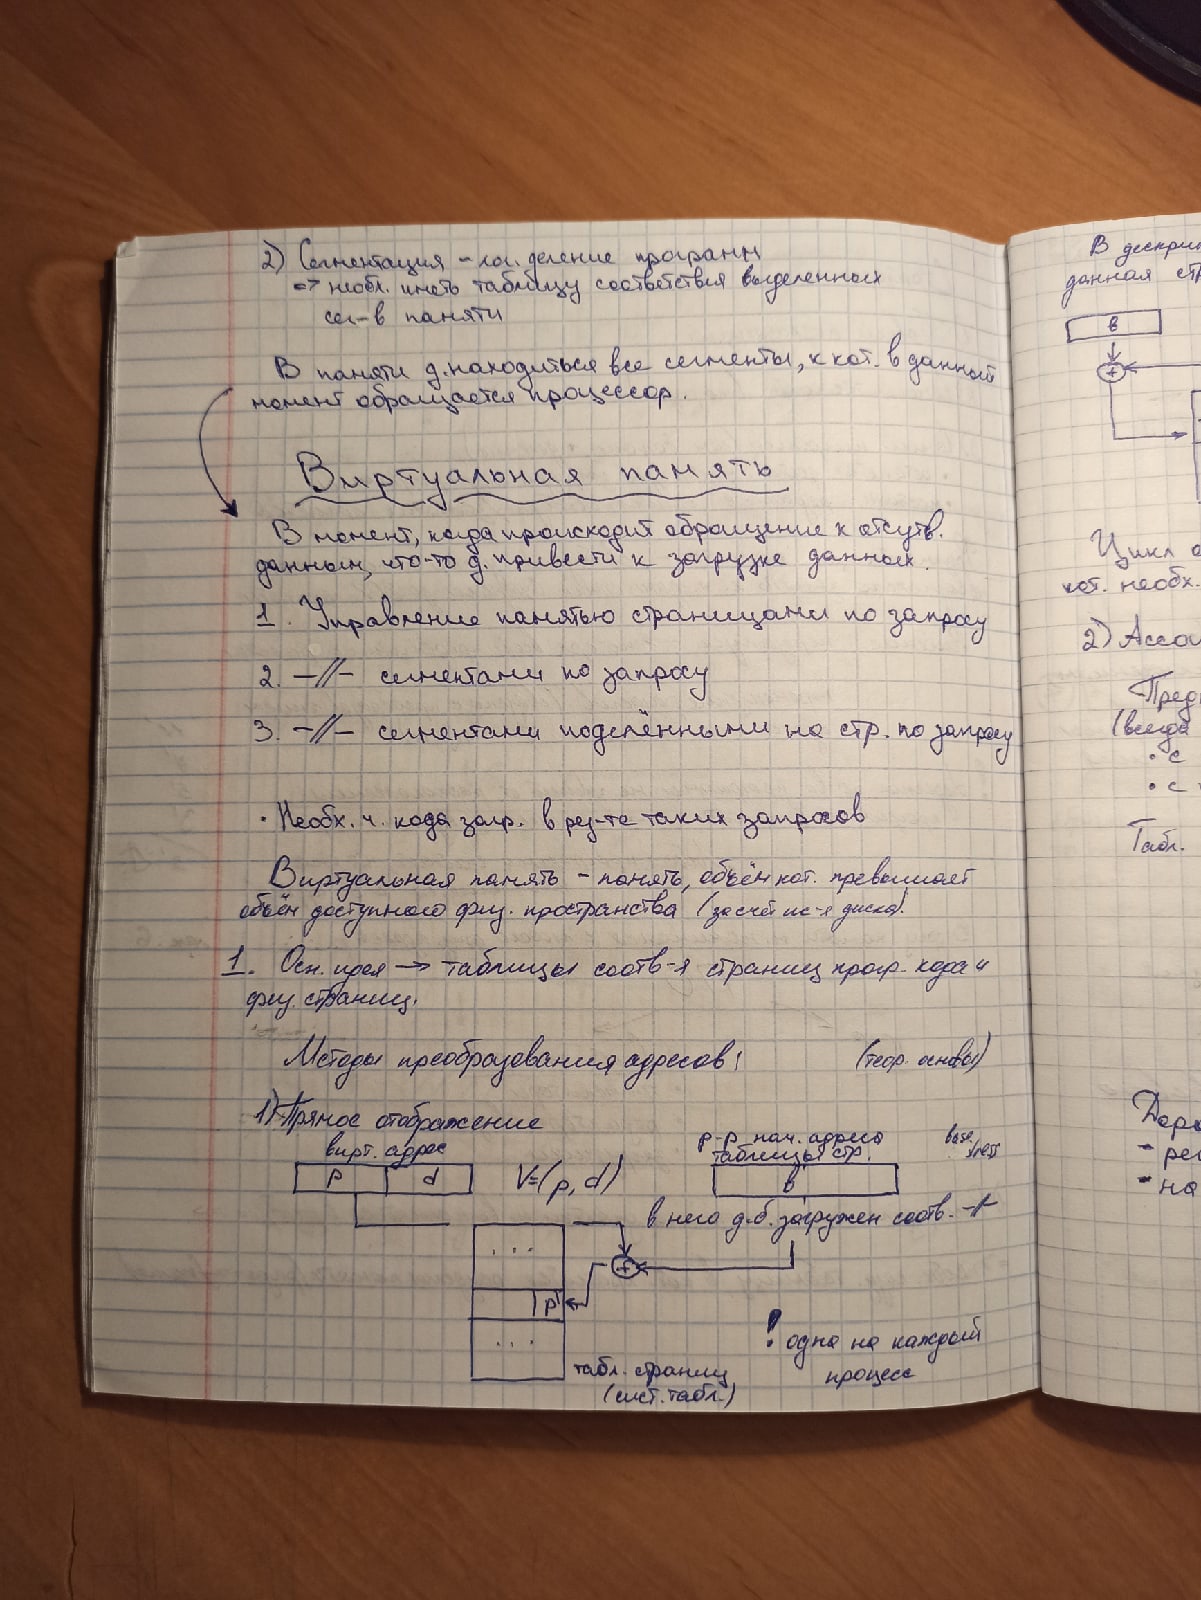 2) Сегментация - лог. деление программ
=> необх. иметь таблицу соответствия выделенных
сег-в памяти
В памяти д. находиться все сегменты, к кот. в данный
момент обращается процессор.
Виртуальная память
В момент, когда происходит обращение к отсутв.
данным, что-то д. привести к загрузке данных.
1. Управление памятью страницами по запросу
2. -//- сегментами по запросу
3. -//- сегментами поделёнными на стр. по запросу
· Необх. ч. кода загр. в рез-те таких запросов
Виртуальная память - память, объём кот. превышает
объём доступного физ. пространства (за счёт ис-я диска).
1. Осн. идея → таблицы соотв-я страниц прогр. кода и
физ. страниц.
Методы преобразования адресов: (теор. основы)
1) Прямое отображение
вирт. адрес
p d V=(p, d)
р-р нач. адреса
таблицы стр.
base
b
в него д.б. загружен соотв. -//-
...
+
p'
...
табл. страниц
(сист. табл.)
! одна на каждый
процесс
В
данная
b
+
Цикл
кот. необх.
2)
(всегда
· с
· с
Табл.
- на